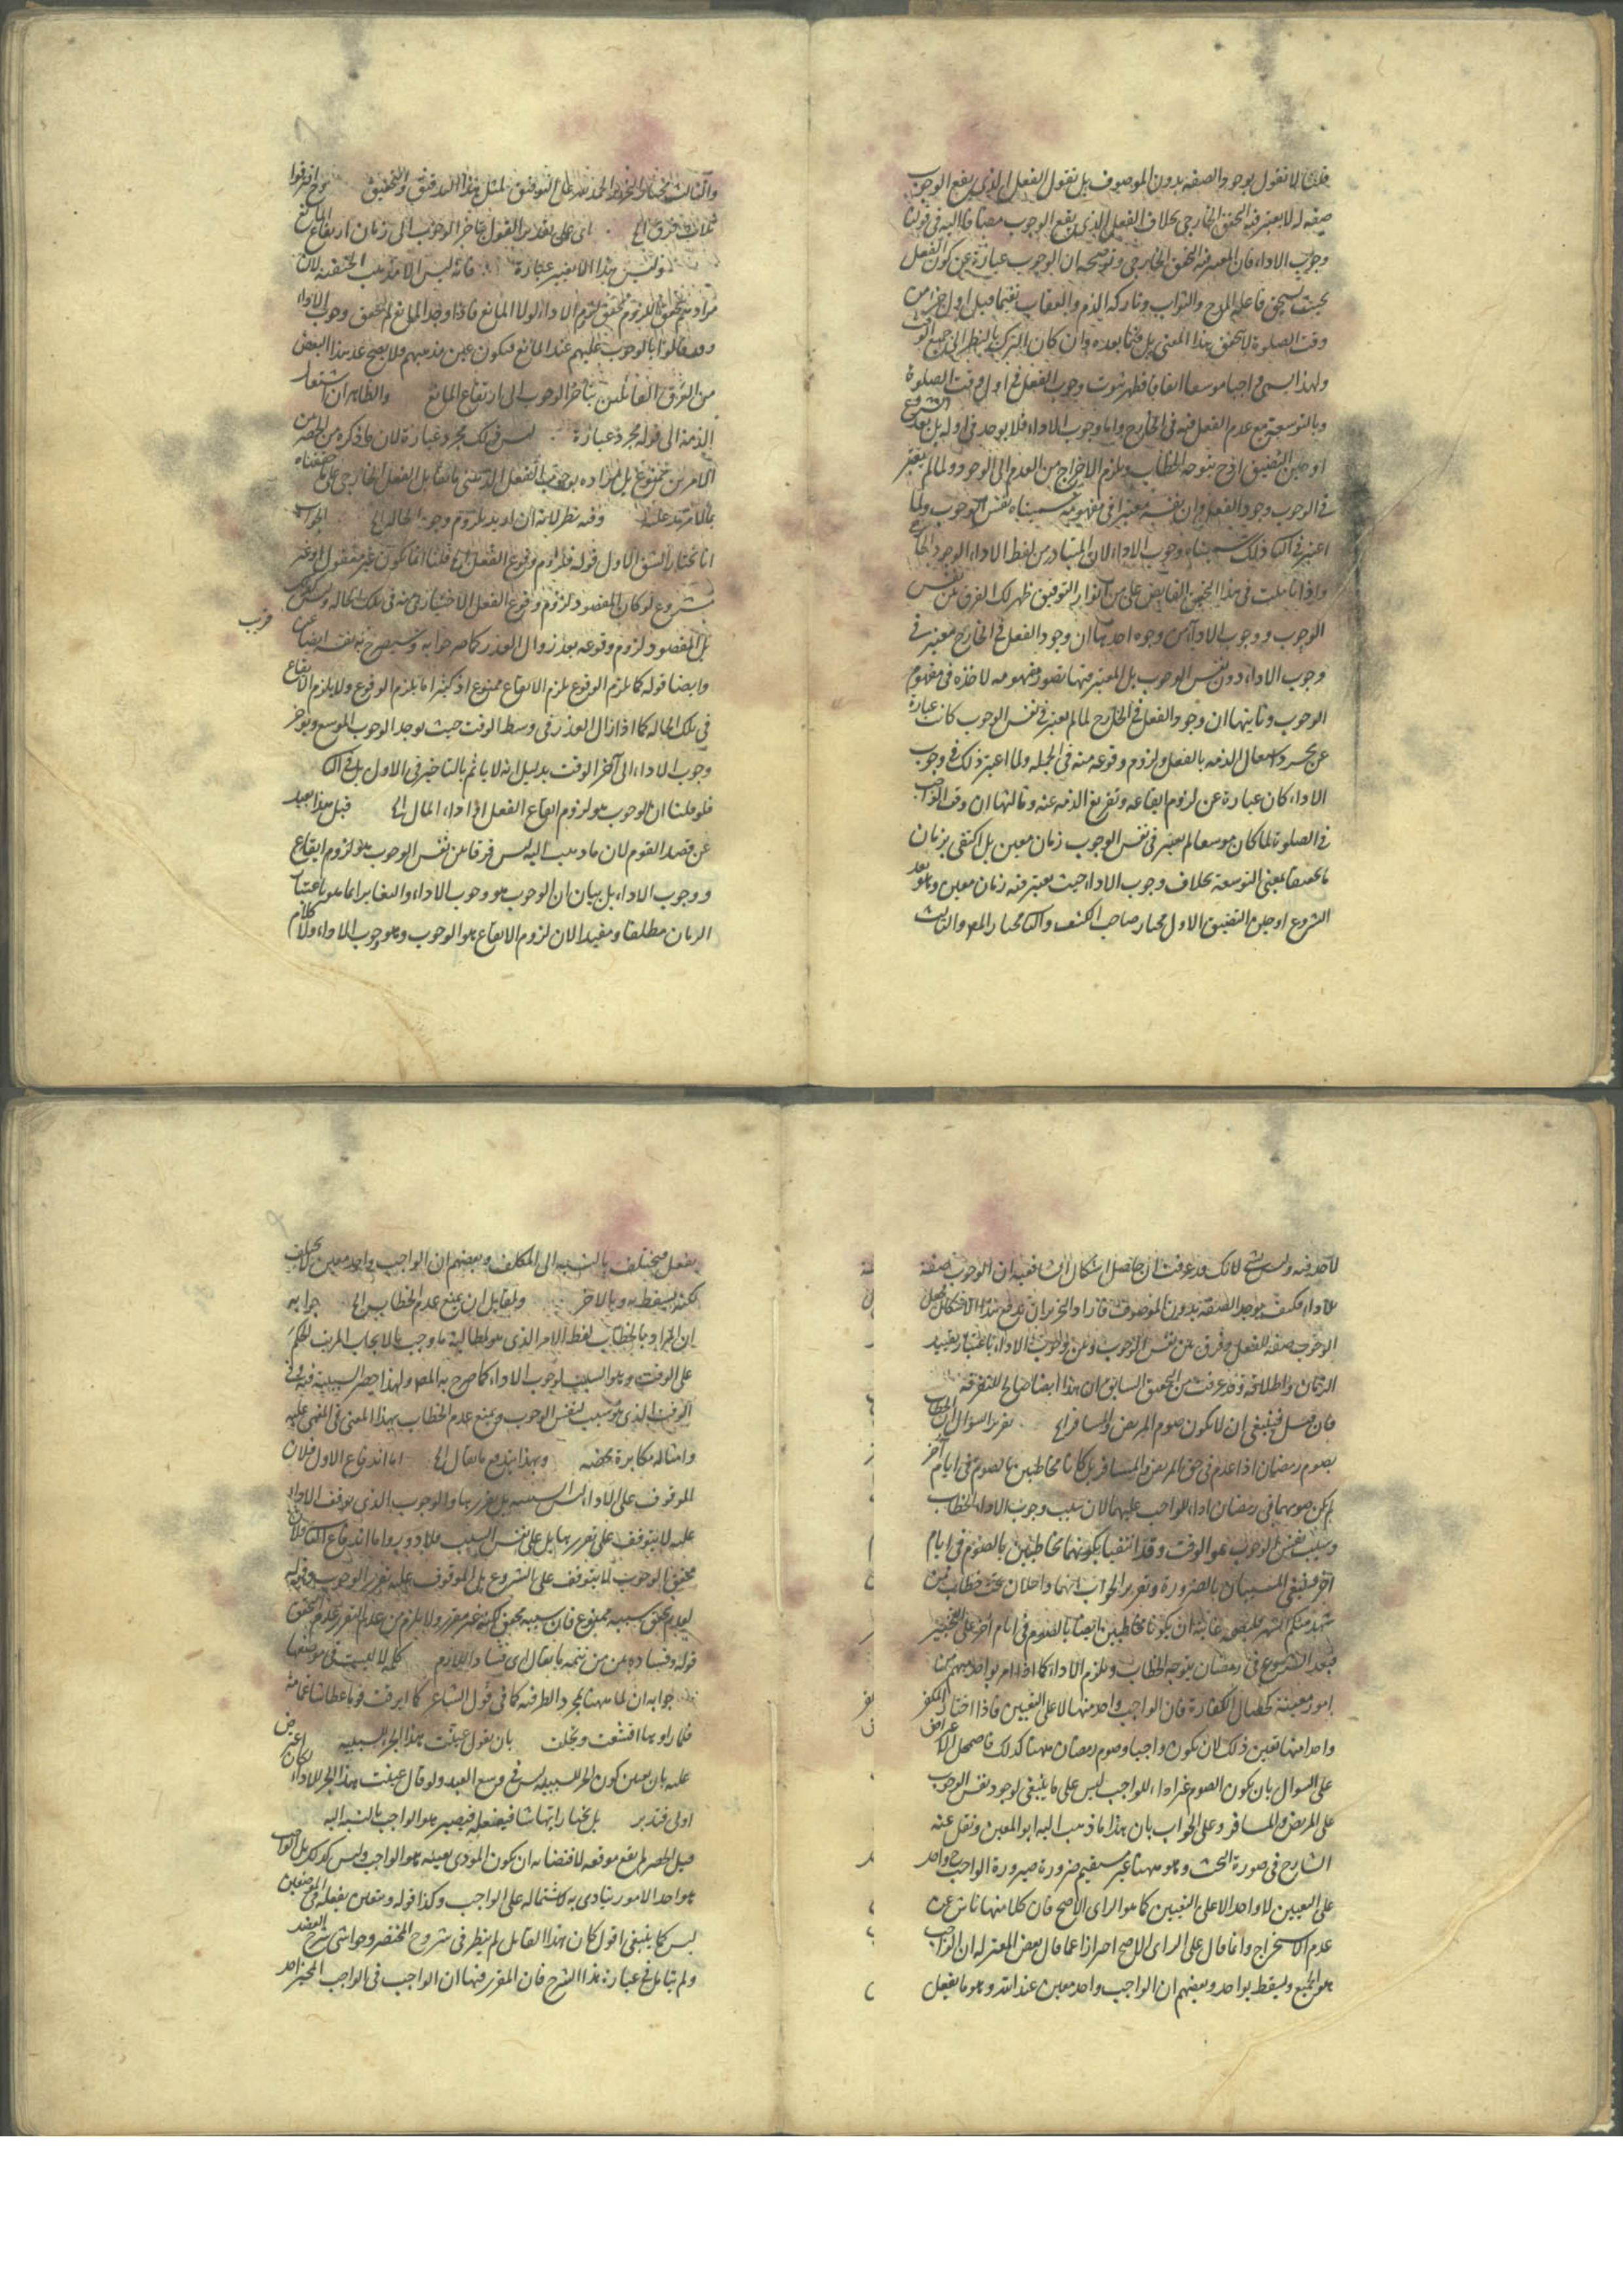 قلنا لا نقول بوجود الصفة بدون الموصوف بل نقول الفعل الذي يقع الوجوب
صفة له لا يعتبر فيه التحقق الخارجي بخلاف الفعل الذي يقع الوجوب مضافا اليه في قولنا
وجوب الاداء فان المعتبر فيه تحقق الخارجي وتوضيحه ان الوجوب عبارة عن كون الفعل
بحيث يستحق فاعله المدح والثواب وتاركه الذم والعقاب ففيما قبل اول جزء من
وقت الصلوة لا يتحقق هذا المعنى بل فيما بعده وان كان الترك بالنظر الى جميع الوقت
ولهذا يسمى واجبا موسعا اتفاقا فظهر ثبوت وجوب الفعل في اول وقت الصلوة
وبالتوسعة مع عدم الفعل فيه في الخارج واما وجوب الاداء فلا يوجد في اوله بل بعد الشروع
او حين التضيق اذ ح يتوجه الخطاب ويلزم الاخراج من العدم الى الوجود ولما لم يعتبر
في الوجوب وجود الفعل وان نفسه معتبرا في مفهومه سميناه نفس الوجوب ولما
اعتبر في الثاني ذلك سميناه وجوب الاداء لان المتبادر من لفظ الاداء الوجود الخارجي
واذا تاملت في هذا التحقيق الفايض على من انوار التوفيق ظهر لك الفرق بين نفس
الوجوب ووجوب الاداء من وجوه احدها ان وجود الفعل في الخارج معتبر في
وجوب الاداء دون نفس الوجوب بل المعتبر فيها تصور مفهومه لاخذه في مفهوم
الوجوب وثانيها ان وجود الفعل في الخارج لما لم يعتبر في نفس الوجوب كان عبارة
عن مجرد اشتغال الذمة بالفعل ولزوم وقوعه منه في الجملة ولما اعتبر ذلك في وجوب
الاداء كان عبارة عن لزوم ايقاعه وتفريغ الذمة عنه وثالثها ان وقت الواجب
في الصلوة لما كان موسعا لم يعتبر في نفس الوجوب زمان معين بل اكتفى بزمان
ما تحقيقا لمعنى التوسعة بخلاف وجوب الاداء حيث يعتبر فيه زمان معين وهو بعد
الشروع او حين التضيق الاول مختار صاحب الكشف والثاني مختار المص والثالث
والثالث مختار النحرير الحمد لله على التوفيق لمثل هذا التدقيق والتحقيق وح افترقوا
ثلاث فرق الخ اي على تقدير القول بتاخر الوجوب الى زمان ارتفاع المانع
وليس هذا الا تغيير عبارة فانه ليس الا مذهب الحنفية لان
مرادهم بتحقق اللزوم تحقق لزوم الاداء لولا المانع فاذا وجد المانع لم يتحقق وجوب الاداء
وقد قالوا بالوجوب عليهم عند المانع فيكون عين مذهبهم ولا يصح عد هذا البعض
من الفرق القائلين بتاخر الوجوب الى ارتفاع المانع والظاهر ان اشتغال
الذمة الى قوله مجرد عبارة ليس ذلك مجرد عبارة لان ما ذكره من الحصر من
الامرين ممنوع بل مراده بوجوب الفعل الذهني ما يقابل الفعل الخارجي على ما حققناه
بما لا مزيد عليه وفيه نظر لانه ان اريد بلزوم وجود الحالة الخ الجواب
انا نختار الشق الاول قوله فلزوم وقوع الفعل الخ قلنا انما يكون غير معقول او غير
مشروع لو كان المقصود لزوم وقوع الفعل الاختياري منه في تلك الحالة وليس كذلك
بل المقصود لزوم وقوعه بعد زوال العذر كما صرحوا به وسيصرح به نفسه ايضا عن
قريب
وايضا قوله كما يلزم الوقوع يلزم الايقاع ممنوع اذ كثيرا ما يلزم الوقوع ولا يلزم الايقاع
في تلك الحالة كما اذا زال العذر في وسط الوقت حيث يوجد الوجوب الموسع ويؤخر
وجوب الاداء الى آخر الوقت بدليل انه لا ياثم بالتاخير في الاول بل في الثاني
فلو قلنا ان الوجوب هو لزوم ايقاع الفعل او اداء المال الخ قيل هذا بعيد
عن قصد القوم لان ما ذهب اليه ليس فرقا بين نفس الوجوب هو لزوم ايقاع
ووجوب الاداء بل بيان ان الوجوب هو وجوب الاداء والتغاير انما هو باعتبار
الزمان مطلقا ومقيدا لان لزوم الايقاع هو الوجوب وهو وجوب الاداء ولا كلام
لاحد فيه وليس بشيء لانك قد عرفت ان حاصل اشكال الشافعية ان الوجوب صفة
للاداء فكيف يوجد الصفة بدون الموصوف فاراد النحرير ان يدفع هذا الاشكال فجعل
الوجوب صفة للفعل وفرق بين نفس الوجوب وبين وجوب الاداء باعتبار تقييد
الزمان واطلاقه وقد عرفت من التحقيق السابق ان هذا ايضا صالح للتفرقة
فان قيل فينبغي ان لا يكون صوم المريض والمسافر الخ تقرير السؤال ان الخطاب
بصوم رمضان اذا عدم في حق المريض والمسافر بل كانا مخاطبين بالصوم في ايام اخر
لم يكن صومهما في رمضان اداء للواجب عليهما لان سبب وجوب الاداء الخطاب
وسبب نفس الوجوب هو الوقت وقد انتفيا بكونهما مخاطبين بالصوم في ايام
اخر فينتفي المسببان بالضرورة وتقرير الجواب انهما داخلان تحت خطاب فمن
شهد منكم الشهر فليصمه غايته ان يكونا مخاطبين ايضا بالصوم في ايام اخر على التخيير
فبعد الشروع في رمضان يتوجه الخطاب ويلزم الاداء كما اذا امر بواحد مبهم من
امور معينة كخصال الكفارة فان الواجب واحد منها لا على التعيين فاذا اختار المكفر
واحدا منها تعين ذلك لان يكون واجبا وصوم رمضان ههنا كذلك فاضمحل الاعتراض
على السؤال بان يكون الصوم غير اداء للواجب ليس على ما ينبغي لوجود نفس الوجوب
على المريض والمسافر وعلى الجواب بان هذا ما ذهب اليه ابو المعين ونقل عنه
الشارح في صورة البحث وهو ههنا غير مستقيم ضرورة صيرورة الواجب ح واحد
على التعيين لا واحد لا على التعيين كما هو الراي الاصح فان كلا منها ناش عن
عدم الاستخراج وانما قال على الراي الاصح احترازا عما قال بعض المعتزلة ان الواجب
هو الجميع ويسقط بواحد وبعضهم ان الواجب واحد معين عند الله وهو ما يفعل
يفعل فيختلف بالنسبة الى المكلف وبعضهم ان الواجب واحد معين لا يختلف
لكنه يسقط به وبالاخر ولقابل ان يمنع عدم الخطاب الخ جوابه
ان المراد بالخطاب لفظ الامر الذي هو لمطالبة ما وجب بالايجاب المرتب الحكم
على الوقت وهو السبب لوجوب الاداء كما صرح به المص ولهذا حصر السببية فيه وفي
الوقت الذي هو سبب لنفس الوجوب ومنع عدم الخطاب بهذا المعنى في المغمى عليه
وامثاله مكابرة محضة وبهذا يندفع ما يقال الخ اما اندفاع الاول فلان
الموقوف على الاداء ليس السببية بل تقررها والوجوب الذي توقف الاداء
عليه لا يتوقف على تقررها بل على نفس السبب فلا دور واما اندفاع الثاني فلان
تحقق الوجوب لا يتوقف على الشروع بل الموقوف عليه تقرر الوجوب وقوله
لعدم تحقق سببه ممنوع فان سببه محقق لكنه غير مقرر ولا يلزم من عدم التقرر عدم التحقق
قوله وفساده بين من تتمة ما يقال اي فساد اللازم كلمة لا ليست في موضعها
جوابه ان لما ههنا لمجرد الظرفية كما في قول الشاعر كما ابرقت قوما عطاشا غمامة
فلما راوها اقشعت وتجلت بان يقول عينت هذا الجزء للسببية اعترض
عليه بان تعيين كون الجزء للسببية ليس في وسع العبد ولو قال عينت هذا الجزء للاداء لكان
اولى فتدبر بل يختار ايتها شا فيفعله فيصير هو الواجب بالنسبة اليه
قيل الحصر لم يقع موقعه لاقتضائه ان يكون المؤدى بعينه هو الواجب وليس كذلك بل الواجب
هو احد الامور يتادى به لاشتماله على الواجب وكذا قوله ويتعين بفعله في الموضعين
ليس كما ينبغي اقول كان هذا القايل لم ينظر في شروح المختصر وحواشي شرح العضد
ولم يتامل في عبارة هذا الشرح فان المقرر فيها ان الواجب في الواجب المخير احد